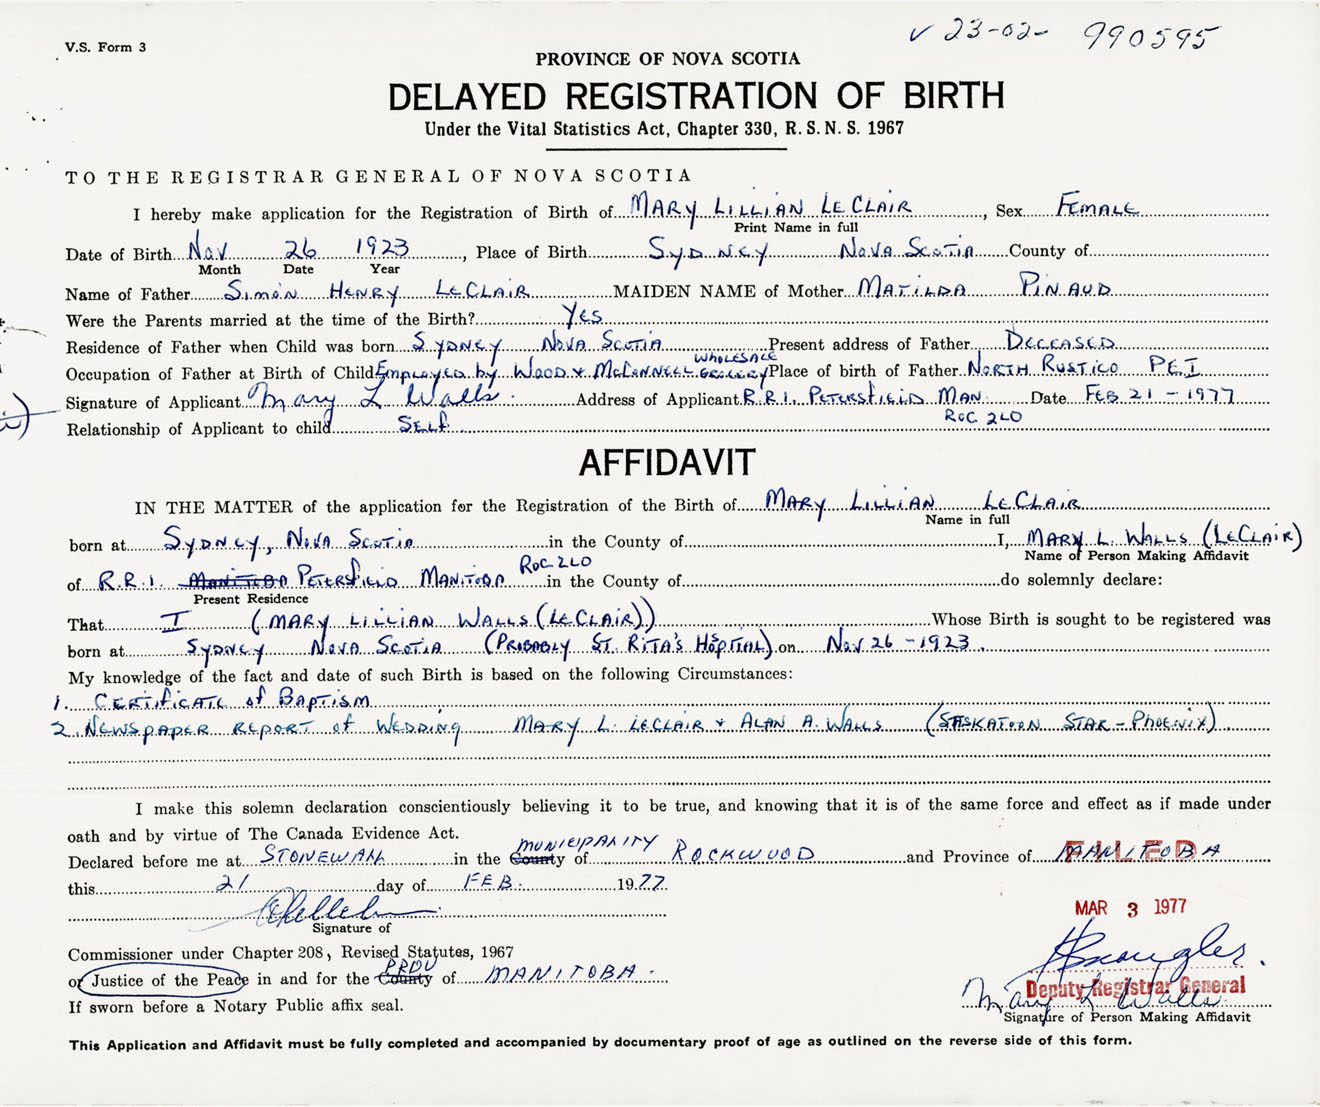 V.S. Form 3
✓ 23-02- 990595
PROVINCE OF NOVA SCOTIA
DELAYED REGISTRATION OF BIRTH
Under the Vital Statistics Act, Chapter 330, R. S. N. S. 1967
TO THE REGISTRAR GENERAL OF NOVA SCOTIA
I hereby make application for the Registration of Birth of MARY LILLIAN LECLAIR, Sex FEMALE
Print Name in full
Date of Birth Nov 26 1923, Place of Birth SYDNEY NOVA SCOTIA County of
Month Date Year
Name of Father SIMON HENRY LECLAIR MAIDEN NAME of Mother MATILDA PINAUD
Were the Parents married at the time of the Birth? YES
Residence of Father when Child was born SYDNEY NOVA SCOTIA Present address of Father DECEASED
WHOLESALE
Occupation of Father at Birth of Child Employed by WOOD & McCONNELL GROCERY Place of birth of Father NORTH RUSTICO PEI
Signature of Applicant Mary L Walls Address of Applicant R.R.1. PETERSFIELD MAN. Date FEB 21 - 1977
ROC 2L0
Relationship of Applicant to child SELF
AFFIDAVIT
IN THE MATTER of the application for the Registration of the Birth of MARY LILLIAN LECLAIR
Name in full
born at SYDNEY, NOVA SCOTIA in the County of I, MARY L. WALLS (LECLAIR)
Name of Person Making Affidavit
ROC 2L0
of R.R.1. MANITOBA PETERSFIELD MANITOBA in the County of do solemnly declare:
Present Residence
That I (MARY LILLIAN WALLS (LECLAIR)) Whose Birth is sought to be registered was
born at SYDNEY NOVA SCOTIA (PROBABLY ST. RITA'S HOSPITAL) on Nov 26 - 1923.
My knowledge of the fact and date of such Birth is based on the following Circumstances:
1. CERTIFICATE of BAPTISM
2. NEWSPAPER REPORT of WEDDING MARY L. LECLAIR & ALAN A. WALLS (SASKATOON STAR-PHOENIX)
I make this solemn declaration conscientiously believing it to be true, and knowing that it is of the same force and effect as if made under
oath and by virtue of The Canada Evidence Act.
MUNICIPALITY
Declared before me at STONEWALL in the County of ROCKWOOD and Province of MANITOBA
FILED
this 21 day of FEB. 1977.
MAR 3 1977
Signature of
Commissioner under Chapter 208, Revised Statutes, 1967
PROV
or Justice of the Peace in and for the County of MANITOBA.
Deputy Registrar General
Mary L Walls
If sworn before a Notary Public affix seal.
Signature of Person Making Affidavit
This Application and Affidavit must be fully completed and accompanied by documentary proof of age as outlined on the reverse side of this form.